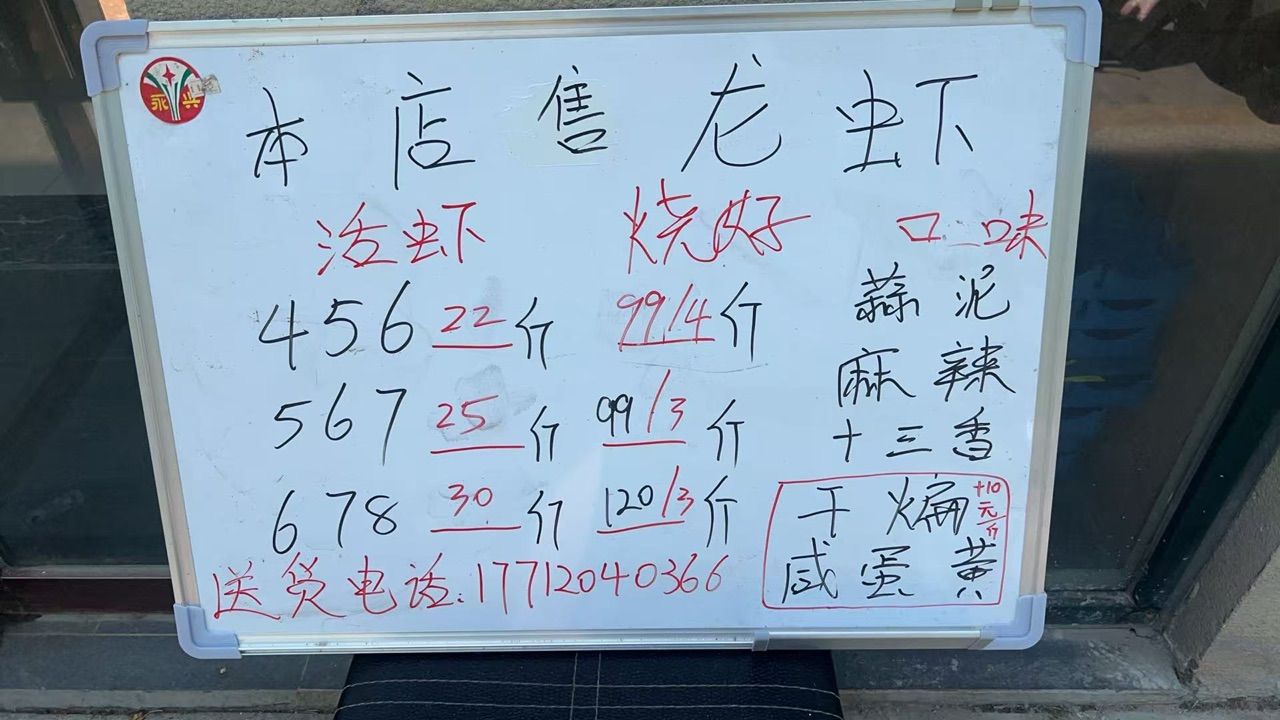 永兴
本店售龙虾
活虾 烧好 口味
456 22斤 99/4斤 蒜泥
567 25斤 99/3斤 麻辣
十三香
678 30斤 120/3斤 干煸 +10元/斤
咸蛋黄
送货电话:17712040366